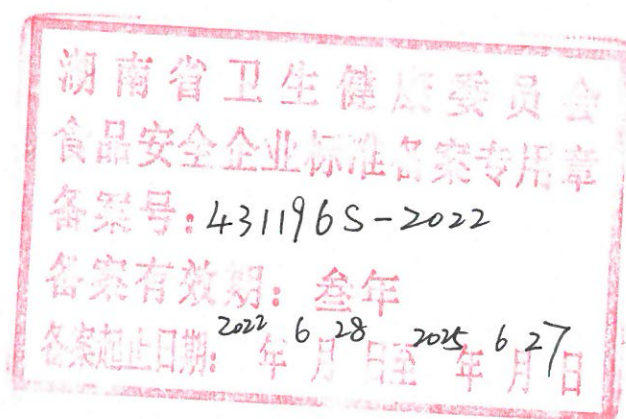 湖南省卫生健康委员会
食品安全企业标准备案专用章
备案号:431196S-2022
备案有效期:叁年
备案起止日期:2022年6月28日至2025年6月27日